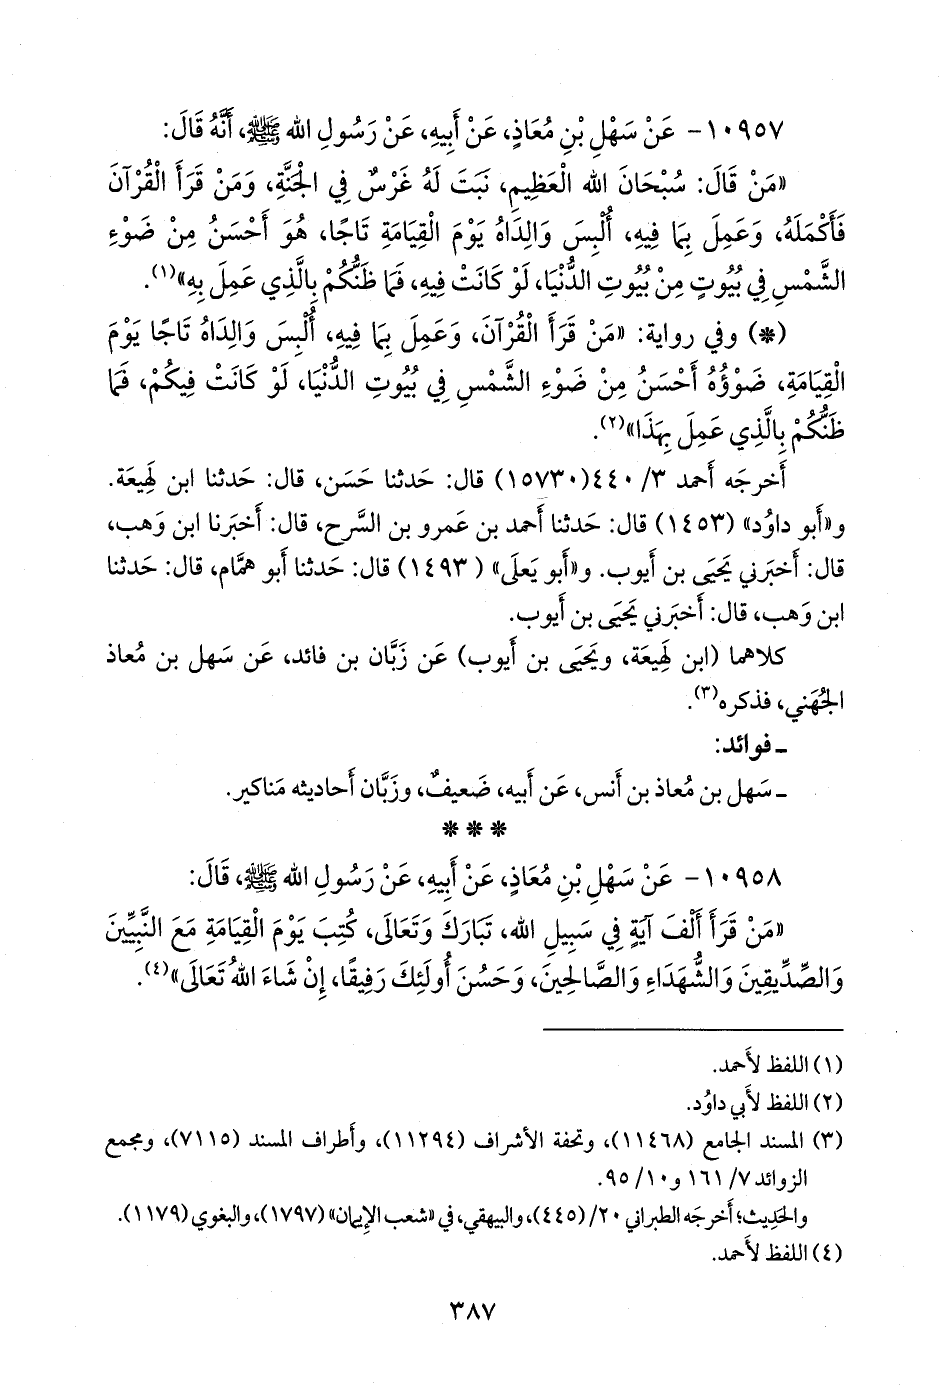 ١٠٩٥٧- عَنْ سَهْلِ بْنِ مُعَاذٍ، عَنْ أَبِيهِ، عَنْ رَسُولِ الله ﷺ، أَنَّهُ قَالَ:
«مَنْ قَالَ: سُبْحَانَ الله الْعَظِيمِ، نَبَتَ لَهُ غَرْسٌ فِي الْجَنَّةِ، وَمَنْ قَرَأَ الْقُرْآنَ
فَأَكْمَلَهُ، وَعَمِلَ بِمَا فِيهِ، أُلْبِسَ وَالِدَاهُ يَوْمَ الْقِيَامَةِ تَاجًا، هُوَ أَحْسَنُ مِنْ ضَوْءِ
الشَّمْسِ فِي بُيُوتٍ مِنْ بُيُوتِ الدُّنْيَا، لَوْ كَانَتْ فِيهِ، فَمَا ظَنُّكُمْ بِالَّذِي عَمِلَ بِهِ»(١).
(*) وفي رواية: «مَنْ قَرَأَ الْقُرْآنَ، وَعَمِلَ بِمَا فِيهِ، أُلْبِسَ وَالِدَاهُ تَاجًا يَوْمَ
الْقِيَامَةِ، ضَوْؤُهُ أَحْسَنُ مِنْ ضَوْءِ الشَّمْسِ فِي بُيُوتِ الدُّنْيَا، لَوْ كَانَتْ فِيكُمْ، فَمَا
ظَنُّكُمْ بِالَّذِي عَمِلَ بِهَذَا»(٢).
أَخرجَه أَحمد ٣/ ٤٤٠(١٥٧٣٠) قال: حَدثنا حَسَن، قال: حَدثنا ابن لَهِيعَة.
و«أَبو داوُد» (١٤٥٣) قال: حَدثنا أَحمد بن عَمرو بن السَّرح، قال: أَخبَرنا ابن وَهب،
قال: أَخبَرني يَحيَى بن أَيوب. و«أَبو يَعلَى» (١٤٩٣) قال: حَدثنا أَبو هَمَّام، قال: حَدثنا
ابن وَهب، قال: أَخبَرني يَحيَى بن أَيوب.
كلاهما (ابن لَهِيعَة، ويَحيَى بن أَيوب) عَن زَبَّان بن فائد، عَن سَهل بن مُعاذ
الجُهَني، فذكره(٣).
ـ فوائد:
ـ سَهل بن مُعاذ بن أَنس، عَن أَبيه، ضَعيفٌ، وزَبَّان أَحاديثه مَناكير.
* * *
١٠٩٥٨- عَنْ سَهْلِ بْنِ مُعَاذٍ، عَنْ أَبِيهِ، عَنْ رَسُولِ الله ﷺ، قَالَ:
«مَنْ قَرَأَ أَلْفَ آيَةٍ فِي سَبِيلِ الله، تَبَارَكَ وَتَعَالَى، كُتِبَ يَوْمَ الْقِيَامَةِ مَعَ النَّبِيِّينَ
وَالصِّدِّيقِينَ وَالشُّهَدَاءِ وَالصَّالِحِينَ، وَحَسُنَ أُولَئِكَ رَفِيقًا، إِنْ شَاءَ اللهُ تَعَالَى»(٤).
(١) اللفظ لأَحمد.
(٢) اللفظ لأَبي داوُد.
(٣) المسند الجامع (١١٤٦٨)، وتحفة الأشراف (١١٢٩٤)، وأَطراف المسند (٧١١٥)، ومجمع
الزوائد ٧/ ١٦١ و١٠/ ٩٥.
والحَدِيث؛ أَخرجَه الطبراني ٢٠/ (٤٤٥)، والبيهقي، في «شعب الإِيمان» (١٧٩٧)، والبغوي (١١٧٩).
(٤) اللفظ لأَحمد.
٣٨٧